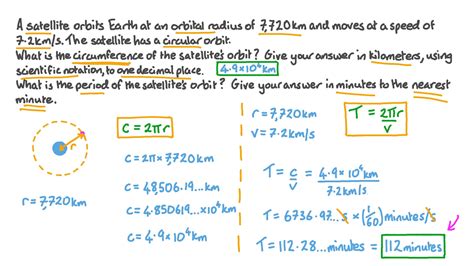 A satellite orbits Earth at an orbital radius of 7,720km and moves at a speed of
7.2km/s. The satellite has a circular orbit.
What is the circumference of the satellite's orbit? Give your answer in kilometers, using
scientific notation, to one decimal place. 4.9×10⁴km
What is the period of the satellite's orbit? Give your answer in minutes to the nearest
minute.
r
r=7,720km
c = 2πr
c = 2π×7,720km
c = 48,506.19...km
c = 4.850619...×10⁴km
c = 4.9×10⁴km
r = 7,720km
v = 7.2km/s
T = 2πr/v
T = c/v = 4.9×10⁴km/7.2km/s
T = 6736.97...s × (1/60) minutes/s
T = 112.28...minutes = 112 minutes